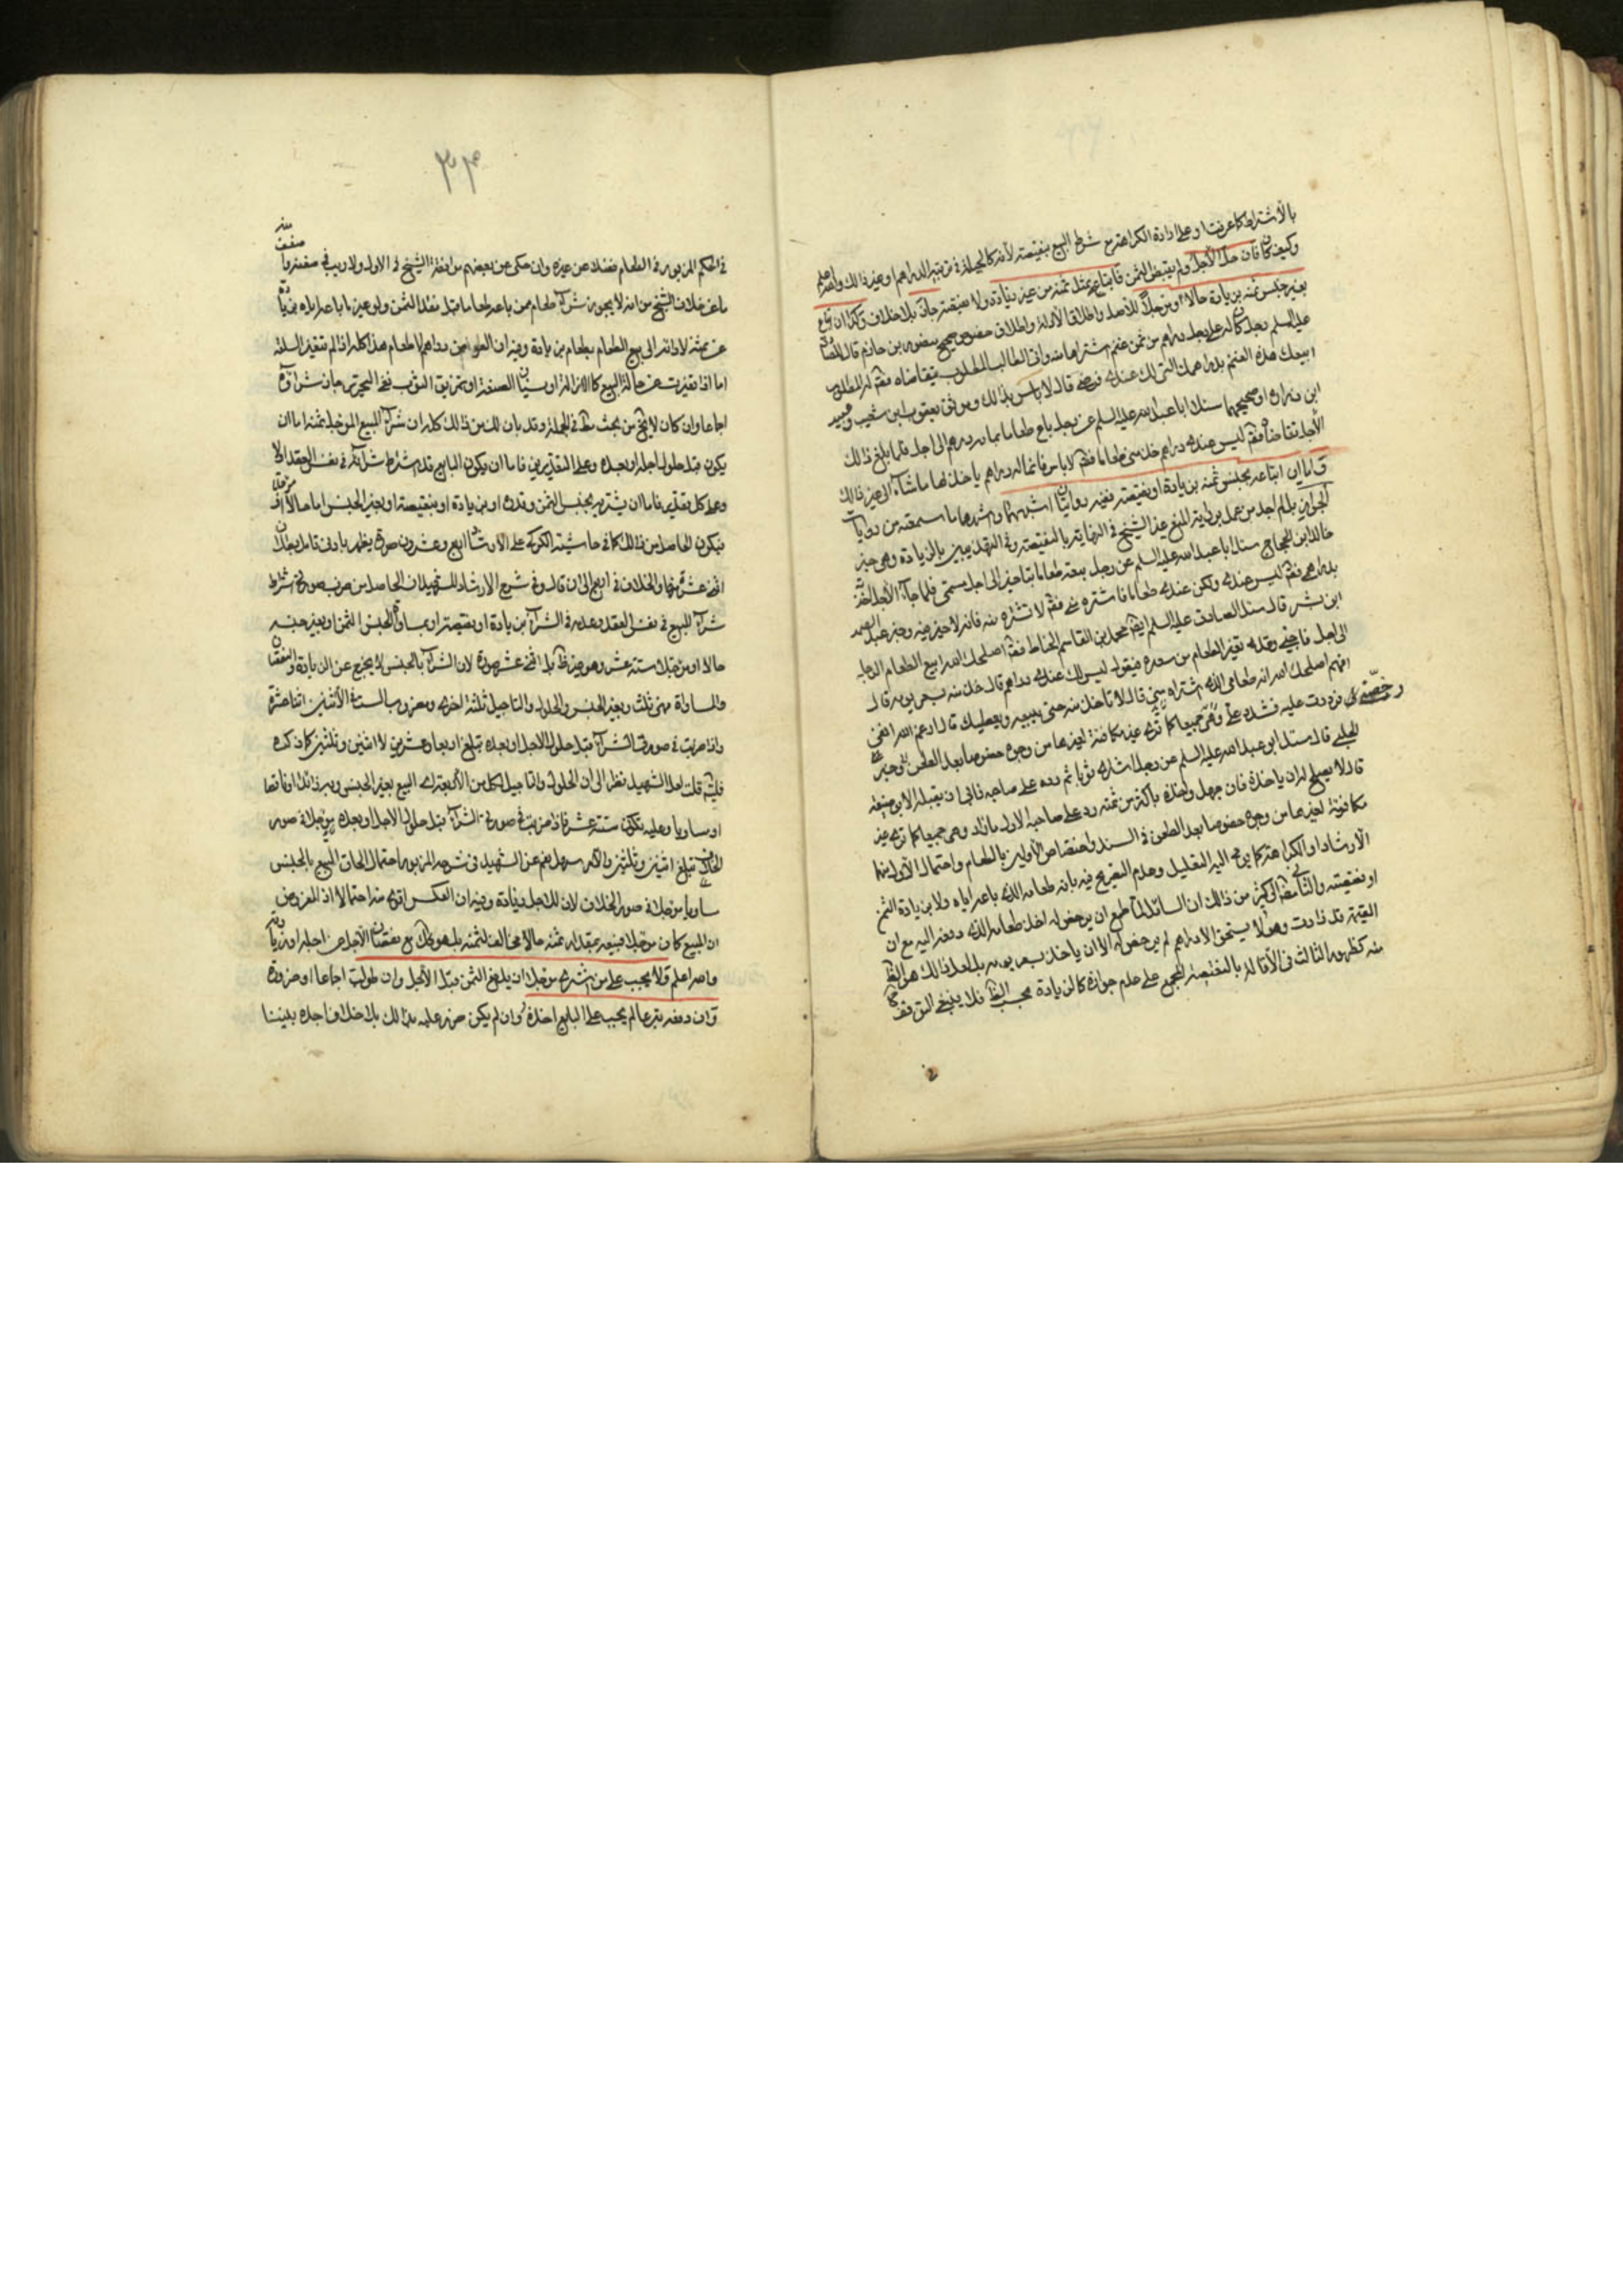 بالاشتراط كما عرفت وعلى ارادة الكراهة مع شرط البيع بنقيصته لانه كالحيلة في ترتب الدراهم او غير ذلك والله اعلم
وكيف كان فان حل الاجل ولم يقبض الثمن فابتاعه بمثل ثمنه من غير زيادة ولا نقيصة جاز بلا خلاف وكذا ان باع
بغير جنس ثمنه بزيادة حالا ومؤجلا للاصل واطلاق الادلة واطلاق خصوص صحيح منصور بن حازم قال للصادق
عليه السلم رجل كان له على رجل دراهم من ثمن غنم اشتراها منه واتى الطالب المطلوب يتقاضاه فقال له المطلوب
ابيعك هذه الغنم بدراهمك التي لك عندي فرضي قال لا باس بذلك وموثق يعقوب بن شعيب وعبيد
ابن زرارة او صحيحهما سئلنا ابا عبد الله عليه السلم عن رجل باع طعاما بمائة درهم الى اجل فلما بلغ ذلك
الاجل تقاضاه فقال ليس عندي دراهم خذ مني طعاما فقال لا باس فانما له دراهم ياخذ بها ما شاء الى غير ذلك
اما ان ابتاعه بجنس ثمنه بزيادة او نقيصة ففيه روايتان اشبههما واشهرهما ما سمعته من روايات
الجواز بل لم اجد من عمل برواية المنع غير الشيخ في النهاية بالنقيصة وفي التهذيبين بالزيادة وهي خبر
خالد بن الحجاج سئلت ابا عبد الله عليه السلم عن رجل بعته طعاما بتاخير الى اجل مسمى فلما جاء الاجل اخذته
بدراهمي فقال ليس عندي دراهم ولكن عندي طعام فاشتره مني فقال لا تشتره منه فانه لا خير فيه وخبر عبد الصمد
ابن بشير قال سئل الصادق عليه السلم ايضا محمد بن القاسم الحناط فقال اصلحك الله ابيع الطعام من الرجل
الى اجل فاجيئ وقد تغير الطعام من سعره فيقول ليس لك عندي دراهم قال خذ منه بسعر يومه قال
افهم اصلحك الله انه طعامي الذي اشتراه مني قال لا تاخذ منه حتى يبيعه ويعطيك قال ارغم الله انفي
رخص لي فرددت عليه فشدد علي وهي جميعا كما ترى غير مكافئة لغيرها من وجوه خصوصا بعد الطعن وخبر
الحلبي قال سئل ابو عبد الله عليه السلم عن رجل اشترى ثوبا ثم رده على صاحبه فابى ان يقبله الا بوضيعة
قال لا يصلح له ان ياخذه فان جهل واخذه باكثر من ثمنه رد على صاحبه الاول ما زاد وهي جميعا كما ترى غير
مكافئة لغيرها من وجوه خصوصا بعد الطعن في السند واختصاص الاولين بالطعام واحتمال الاول منهما
الارشاد او الكراهة كما يومي اليه التعليل وعدم التصريح فيه بانه طعامه الذي باعه اياه ولا بزيادة الثمن
او نقيصته والثاني من ذلك ان السائل لما طمع ان يرخص له اخذ طعامه الذي دفعه اليه مع ان
القيمة قد زادت وهو لا يستحق الا دراهم لم يرخص له الا ان ياخذ بسعر يومه بل لعل ذلك هو الظ
منه كظهور الثالث في الاقالة بالنقيصة المجمع على عدم جوازه كالزيادة بحسب الظ فلا ينبغي التوقف
٣٤
في الحكم المزبور في الطعام فضلا عن غيره وان حكي عن بعضهم موافقة الشيخ في الاول ولا ريب في ضعفه
ما عن خلاف الشيخ من انه لا يجوز شراء طعام ممن باعه طعاما قبل نقد الثمن ولو غير ما باعه اياه بزيادة
عن ثمنه لادائه الى بيع الطعام بطعام بزيادة وفيه ان العوض دراهم لا طعام هذا كله اذا لم تتغير السلعة
اما اذا تغيرت عن حالة البيع كالهزال او نسيان الصنعة او تمزيق الثوب فعن التحرير جاز شراؤه
اجماعا وان كان لا يخ من بحث ما في الجملة وقد بان لك من ذلك كله ان شراء المبيع المؤجل ثمنه اما ان
يكون قبل حلول اجله او بعده وعلى التقديرين فاما ان يكون البايع قد شرط شراءه في نفس العقد او لا
وعلى كل تقدير فاما ان يشتريه بجنس الثمن وقدره او بزيادة او بنقيصة او بغير الجنس اما حالا او مؤجلا
فيكون الحاصل من ذلك كما في حاشية الكركي على الارشاد اربع وعشرون صورة يظهر بادنى تامل
اثنى عشر منها والخلاف في اربع الى ان قال وفي شرح الارشاد للشهيد ان الحاصل من ضرب صورتي شرط
شراء المبيع في نفس العقد وعدمه في الشراء بزيادة او نقيصة او مساواة لجنس الثمن او بغير جنسه
حالا او مؤجلا ستة عشر وهو غير ظ بل اثنى عشر صورة لان الشراء بالجنس لا يخرج عن الزيادة والنقصان
والمساواة فهي ثلث وبغير الجنس والحلول والتاجيل ثلثة اخرى ومضروب الستة في الاثنين اثنا عشرة
واذا ضربت في صورتي الشراء قبل حلول الاجل او بعده تبلغ اربعا وعشرين لا اثنين وثلثين كما ذكره
قلت لعل الشهيد نظر الى ان الحلول والتاجيل لكل من الاربعة اي البيع بغير الجنس وبزيادة او نقيصة
او مساويا وعليه تكون ستة عشر فاذا ضربت في صورتي الشراء قبل حلول الاجل او بعده
تبلغ اثنين وثلثين والامر سهل نعم عن الشهيد في شرحه المزبور احتمال الحاق البيع بالجنس
مساويا مؤجلا في صور الخلاف لان للاجل زيادة وفيه ان العكس اقوى منه احتمالا اذ المفروض
ان المبيع كان مؤجلا فبيعه بمقدار ثمنه حالا مخالف لثمنه بل هو كذلك مع نقصان الاجل عن اجله او زيادته
والله اعلم ولا يجب على من اشترى مؤجلا ان يدفع الثمن قبل الاجل وان طولب اجماعا او ضرورة
وان دفعه تبرعا لم يجب على البايع اخذه وان لم يكن ضرر عليه بذلك بلا خلاف اجده بيننا